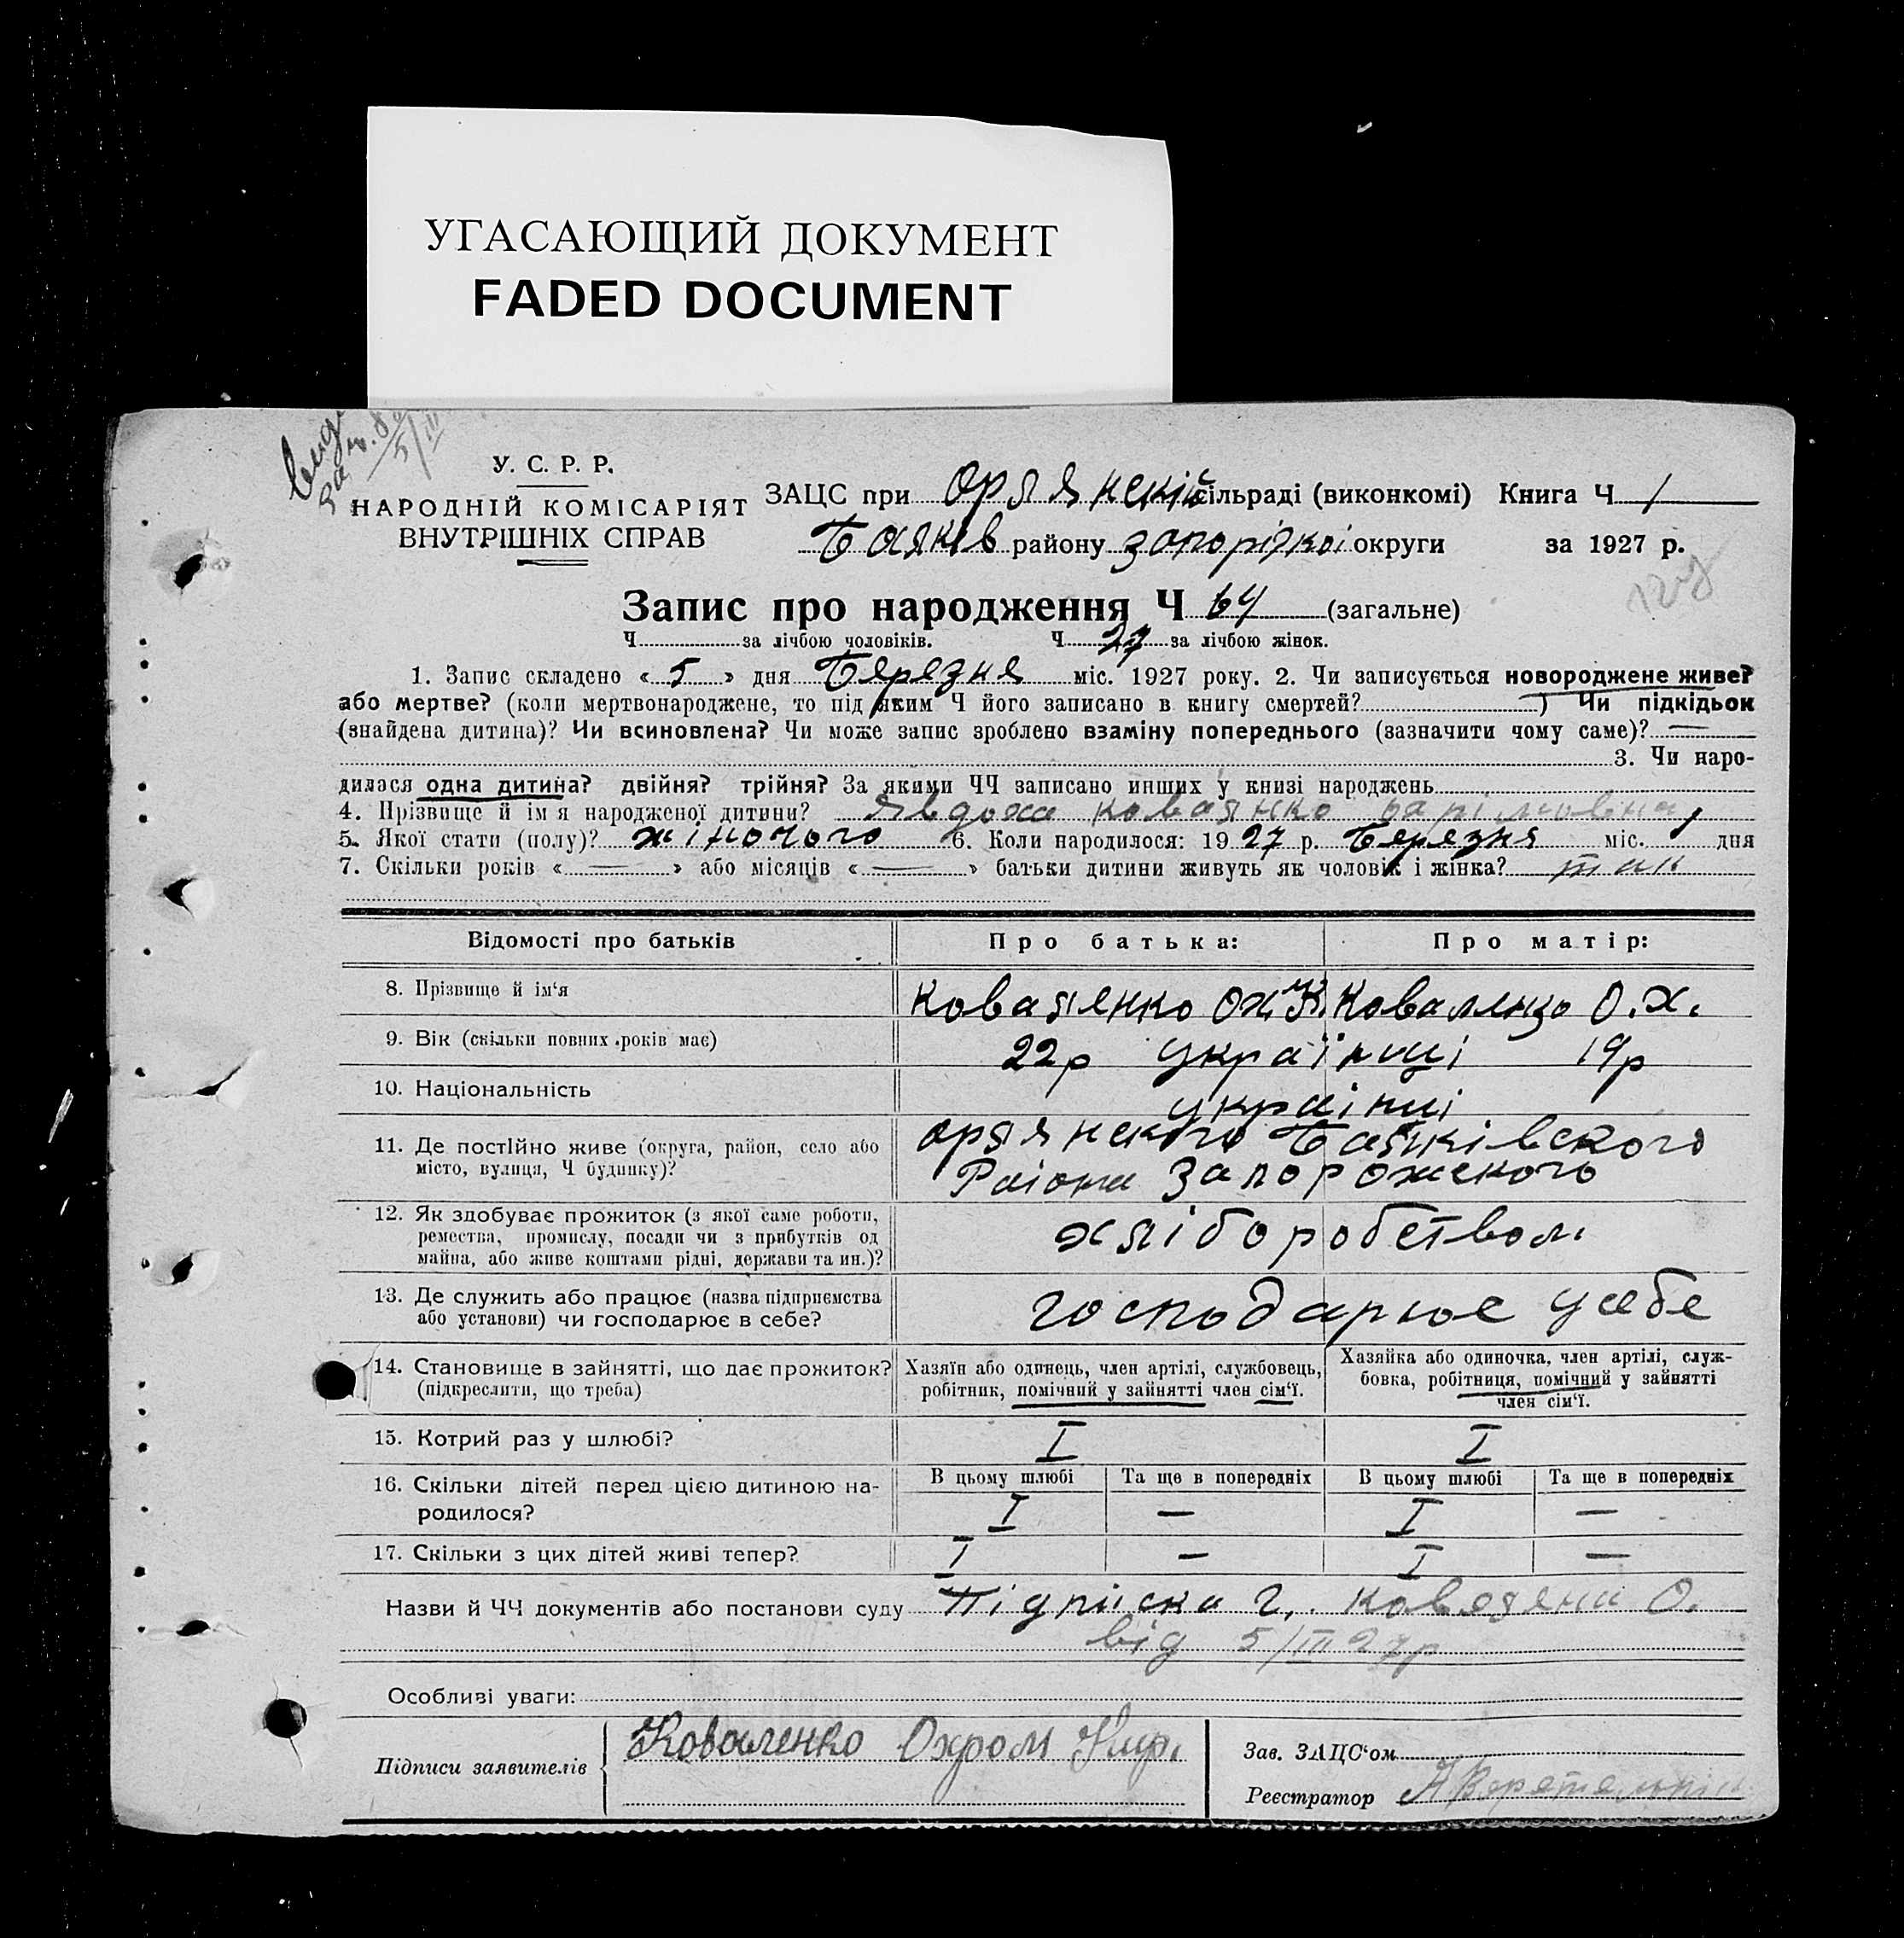 УГАСАЮЩИЙ ДОКУМЕНТ
FADED DOCUMENT
5/III
У. С. Р. Р.
НАРОДНІЙ КОМІСАРІЯТ
ВНУТРІШНІХ СПРАВ
ЗАЦС при Орлянскій сільраді (виконкомі) Книга Ч 1
Балків району Запорізкоі округи за 1927 р.
Запис про народження Ч 64 (загальне)
Ч за лічбою чоловіків. Ч 27 за лічбою жінок.
1. Запис складено « 5 » дня Бярезня міс. 1927 року. 2. Чи записується новороджене живе?
або мертве? (коли мертвонароджене, то під яким Ч його записано в книгу смертей? ) Чи підкідьок
(знайдена дитина)? Чи всиновлена? Чи може запис зроблено взаміну попереднього (зазначити чому саме)? —
3. Чи наро-
дилася одна дитина? двійня? трійня? За якими ЧЧ записано инших у книзі народжень
4. Прізвище й ім'я народженої дитини? Явдоха
5. Якої стати (полу)? жіночого 6. Коли народилося: 1927 р. Бярезня міс. дня
7. Скільки років « — » або місяців « — » батьки дитини живуть як чоловік і жінка? так
Відомості про батьків Про батька: Про матір:
8. Прізвище й ім'я Коваленко Ох. К. Коваленко О. Х.
9. Вік (скільки повних років має) 22р украінці 19р
10. Національність украінці
11. Де постійно живе (округа, район, село або місто, вулиця, Ч будинку)? Орлянского Балківского
Раіона Запорожского
12. Як здобуває прожиток (з якої саме роботи, ремества, промислу, посади чи з прибутків од майна, або живе коштами рідні, держави та ин.)? хліборобством
13. Де служить або працює (назва підприємства або установи) чи господарює в себе? господарює усебе
14. Становище в зайнятті, що дає прожиток? (підкреслити, що треба)
Хазяїн або одинець, член артілі, службовець, робітник, помічний у зайнятті член сім'ї.
Хазяйка або одиночка, член артілі, служ-
бовка, робітниця, помічний у зайнятті
член сім'ї.
15. Котрий раз у шлюбі? I I
16. Скільки дітей перед цією дитиною на-
родилося?
В цьому шлюбі Та ще в попередніх В цьому шлюбі Та ще в попередніх
I — I —
17. Скільки з цих дітей живі тепер? I — I —
Назви й ЧЧ документів або постанови суду Підписка г. О.
від 5/III 27р
Особливі уваги:
Підписи заявителів Коваленко Охром Кир.
Зав. ЗАЦС'ом
Реєстратор